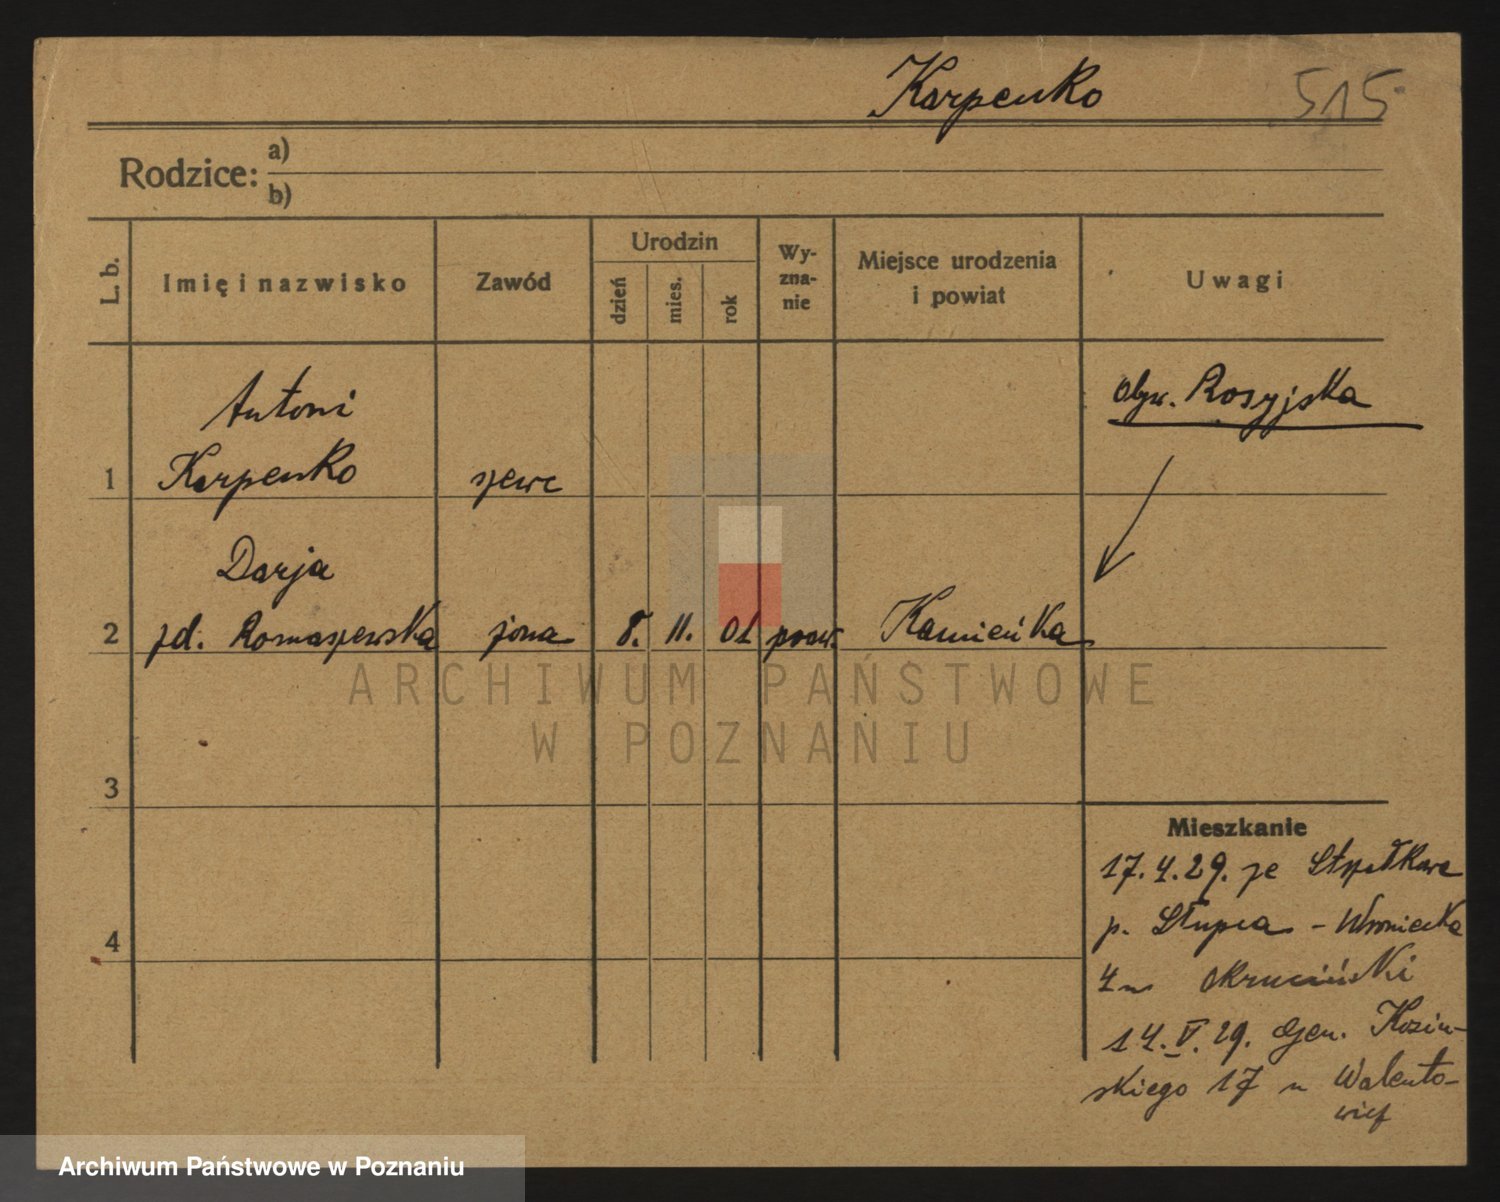 Karpenko 515
Rodzice: a)
b)
L. b.
Imię i nazwisko
Zawód
Urodzin
dzień
mies.
rok
Wy-
zna-
nie
Miejsce urodzenia
i powiat
Uwagi
Antoni
obyw. Rosyjska
1 Karpenko szewc
Darja
2 zd. Romaszewska żona 8. 11. 01 praw. Kamieńka
ARCHIWUM PAŃSTWOWE
W POZNANIU
3
Mieszkanie
17.4.29. ze
4 p. Słupca - Wroniecka
4
14.V.29. Gen. Kosiń-
skiego 17 u Walento-
wicz
Archiwum Państwowe w Poznaniu